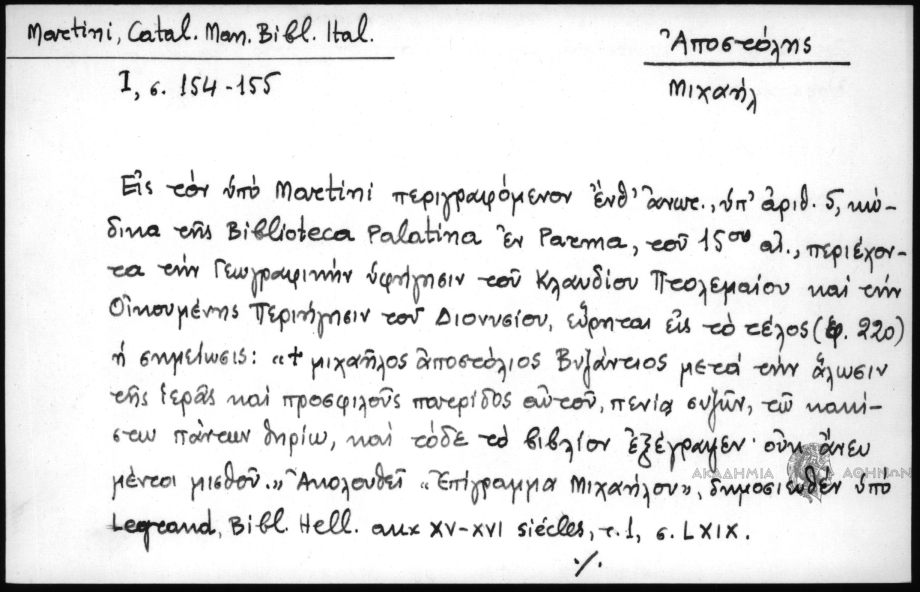 Martini, Catal. Man. Bibl. Ital.
I, σ. 154-155
Ἀποστόλης
Μιχαήλ
Εἰς τόν ὑπό Martini περιγραφόμενον ἔνθ' ἄνωτ., ὑπ' ἀριθ. 5, κώ-
δικα τῆς Biblioteca Palatina ἐν Parma, τοῦ 15ου αἰ., περιέχον-
τα τήν Γεωγραφικήν ὑφήγησιν τοῦ Κλαυδίου Πτολεμαίου καί τήν
Οἰκουμένης Περιήγησιν τοῦ Διονυσίου, εὕρηται εἰς τό τέλος (φ. 220)
ἡ σημείωσις: «+ μιχαῆλος ἀποστόλιος Βυζάντιος μετά τήν ἅλωσιν
τῆς ἱερᾶς καί προσφιλοῦς πατρίδος αὐτοῦ, πενία συζῶν, τῶ κακί-
στω πάντων θηρίω, καί τόδε τό βιβλίον ἐξέγραψεν· οὐκ ἄνευ
μέντοι μισθοῦ.» Ἀκολουθεῖ «Ἐπίγραμμα Μιχαήλου», δημοσιευθέν ὑπό
Legrand, Bibl. Hell. aux XV-XVI siécles, τ. 1, σ. LXIX.
./.
ΑΚΑΔΗΜΙΑ ΑΘΗΝΩΝ